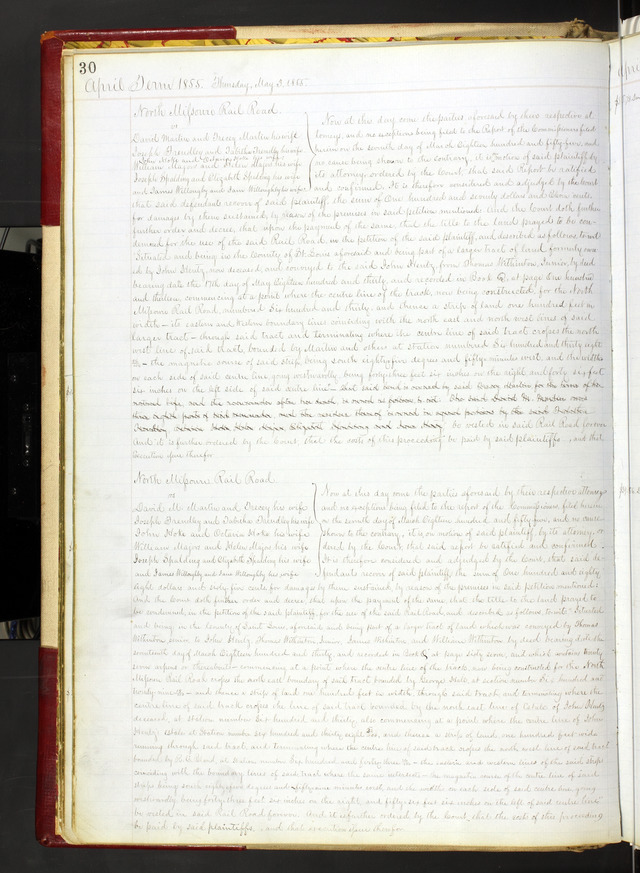 30
April Term 1855. Thursday, May 3, 1855.
North Missouri Rail Road
vs
David Martin and Treecy Martin his wife
Joseph Brendley and Tabitha Brendley his wife
John Hoke and his wife
William Mayes and Helen Mayes his wife
Joseph Spalding and Elizabeth Spalding his wife
and James Willoughby and Jane Willoughby his wife
Now at this day come the parties aforesaid by their respective at
torneys, and no exceptions being filed to the Report of the Commissioners filed
herein on the seventh day of March Eighteen hundred and fifty-five, and
no cause being shown to the contrary, it is on motion of said plaintiff, by
its attorney, ordered by the Court, that said Report be ratified
and confirmed. It is therefore considered and adjudged by the Court
that said defendants recover of said plaintiff, the sum of One hundred and seventy dollars and cents
for damages by them sustained by reason of the premises in said petition mentioned. And the Court doth further
further order and decree, that upon the payment of the same, that the title to the land prayed to be con-
demned for the use of the said Rail Road, in the petition of the said plaintiff, and described as follows, to wit:
Situated and being in the County of St Louis aforesaid and being part of a larger tract of land, formerly own
ed by John Hentz, now deceased, and conveyed to the said John Hentz, from Thomas Withington, Junior, by deed
bearing date the 17th day of May Eighteen hundred and thirty, and recorded in Book Q, at page One hundred
and thirteen, commencing at a point where the centre line of the track, now being constructed for the North
Missouri Rail Road, numbered Six hundred and thirty, and thence a strip of land one hundred feet in
width – its eastern and western boundary lines coinciding with the north east and north west lines of said
larger tract – through said tract and terminating where the centre line of said tract crosses the north
west line of said tract, bounded by Martin and others at Station numbered Six hundred and thirty eight
– the magnetic course of said strip being south eighty five degrees and fifty minutes west, and the width
on each side of said centre line going westwardly, being forty three feet six inches on the right and forty six feet
six inches on the left side of said centre line – that said land is owned by said Treecy Martin for the term of her
natural life, and the remainder after her death is owned as follows to wit. The said David M. Martin owns
three eighths parts of said remainder, and the residue thereof is owned in equal portions by the said Tabitha
Brendley, Octavia Hoke, Helen Mayes, Elizabeth Spalding and Jane be vested in said Rail Road forever
And it is further ordered by the Court, that the costs of this proceeding be paid by said plaintiffs, and that
Execution issue therefor
North Missouri Rail Road
vs
David M. Martin and Treecey his wife
Joseph Brendley and Tabitha Brendley his wife
John Hoke and Octavia Hoke his wife
William Mayes and Helen Mayes his wife
Joseph Spalding and Elizabeth Spalding his wife
and James Willoughby and Jane Willoughby his wife
Now at this day come the parties aforesaid by their respective attorneys
and no exceptions being filed to the report of the Commissioners filed herein
on the seventh day of March Eighteen hundred and fifty five, and no cause
shown to the contrary, it is, on motion of said plaintiff, by its attorney, or-
dered by the Court, that said report be ratified and confirmed.
It is therefore considered and adjudged by the Court, that said de-
fendants recover of said plaintiff, the sum of One hundred and eighty
eight dollars and sixty five cents for damages by them sustained by reason of the premises in said petition mentioned.
And the Court doth further order and decree, that upon the payment of the same, that the title to the land prayed to
be condemned, in the petition of the said plaintiff, for the use of the said Rail Road, and described as follows to wit: Situated
and being in the County of Saint Louis, aforesaid and being part of a larger tract of land which was conveyed by Thomas
Withington senior to John Hentz, Thomas Withington Junior, James Withington and William Withington by deed bearing date the
seventeenth day of March Eighteen hundred and thirty, and recorded in Book Q, at page sixty seven, and which contains twenty
seven arpens or thereabouts – commencing at a point where the centre line of the track, now being constructed for the North
Missouri Rail Road crosses the north east boundary of said tract bounded by George at station number Six hundred and
twenty nine – and thence a strip of land one hundred feet in width, through said tract, and terminating where the
centre line of said track crosses the line of said tract bounded by the north east line of Estate of John Hentz
deceased, at Station number Six hundred and thirty, also commencing at a point where the centre line of John
Hentz' estate at Station number Six hundred and thirty eight and thence a strip of land one hundred feet wide
running through said tract and terminating where the centre line of said track crosses the north west line of said tract
bounded by at Station number Six hundred and forty three – the eastern and western lines of the said strips
coinciding with the boundary lines of said tract where the same intersects – the magnetic course of the centre line of said
strips being south eighty five degrees and fifty nine minutes west, and the width on each side of said centre line, going
westwardly being forty three feet six inches on the right, and fifty six feet six inches on the left of said centre line
be vested in said Rail Road forever. And it is further ordered by the Court that the costs of this proceeding
be paid by said plaintiffs, and that execution issue therefor